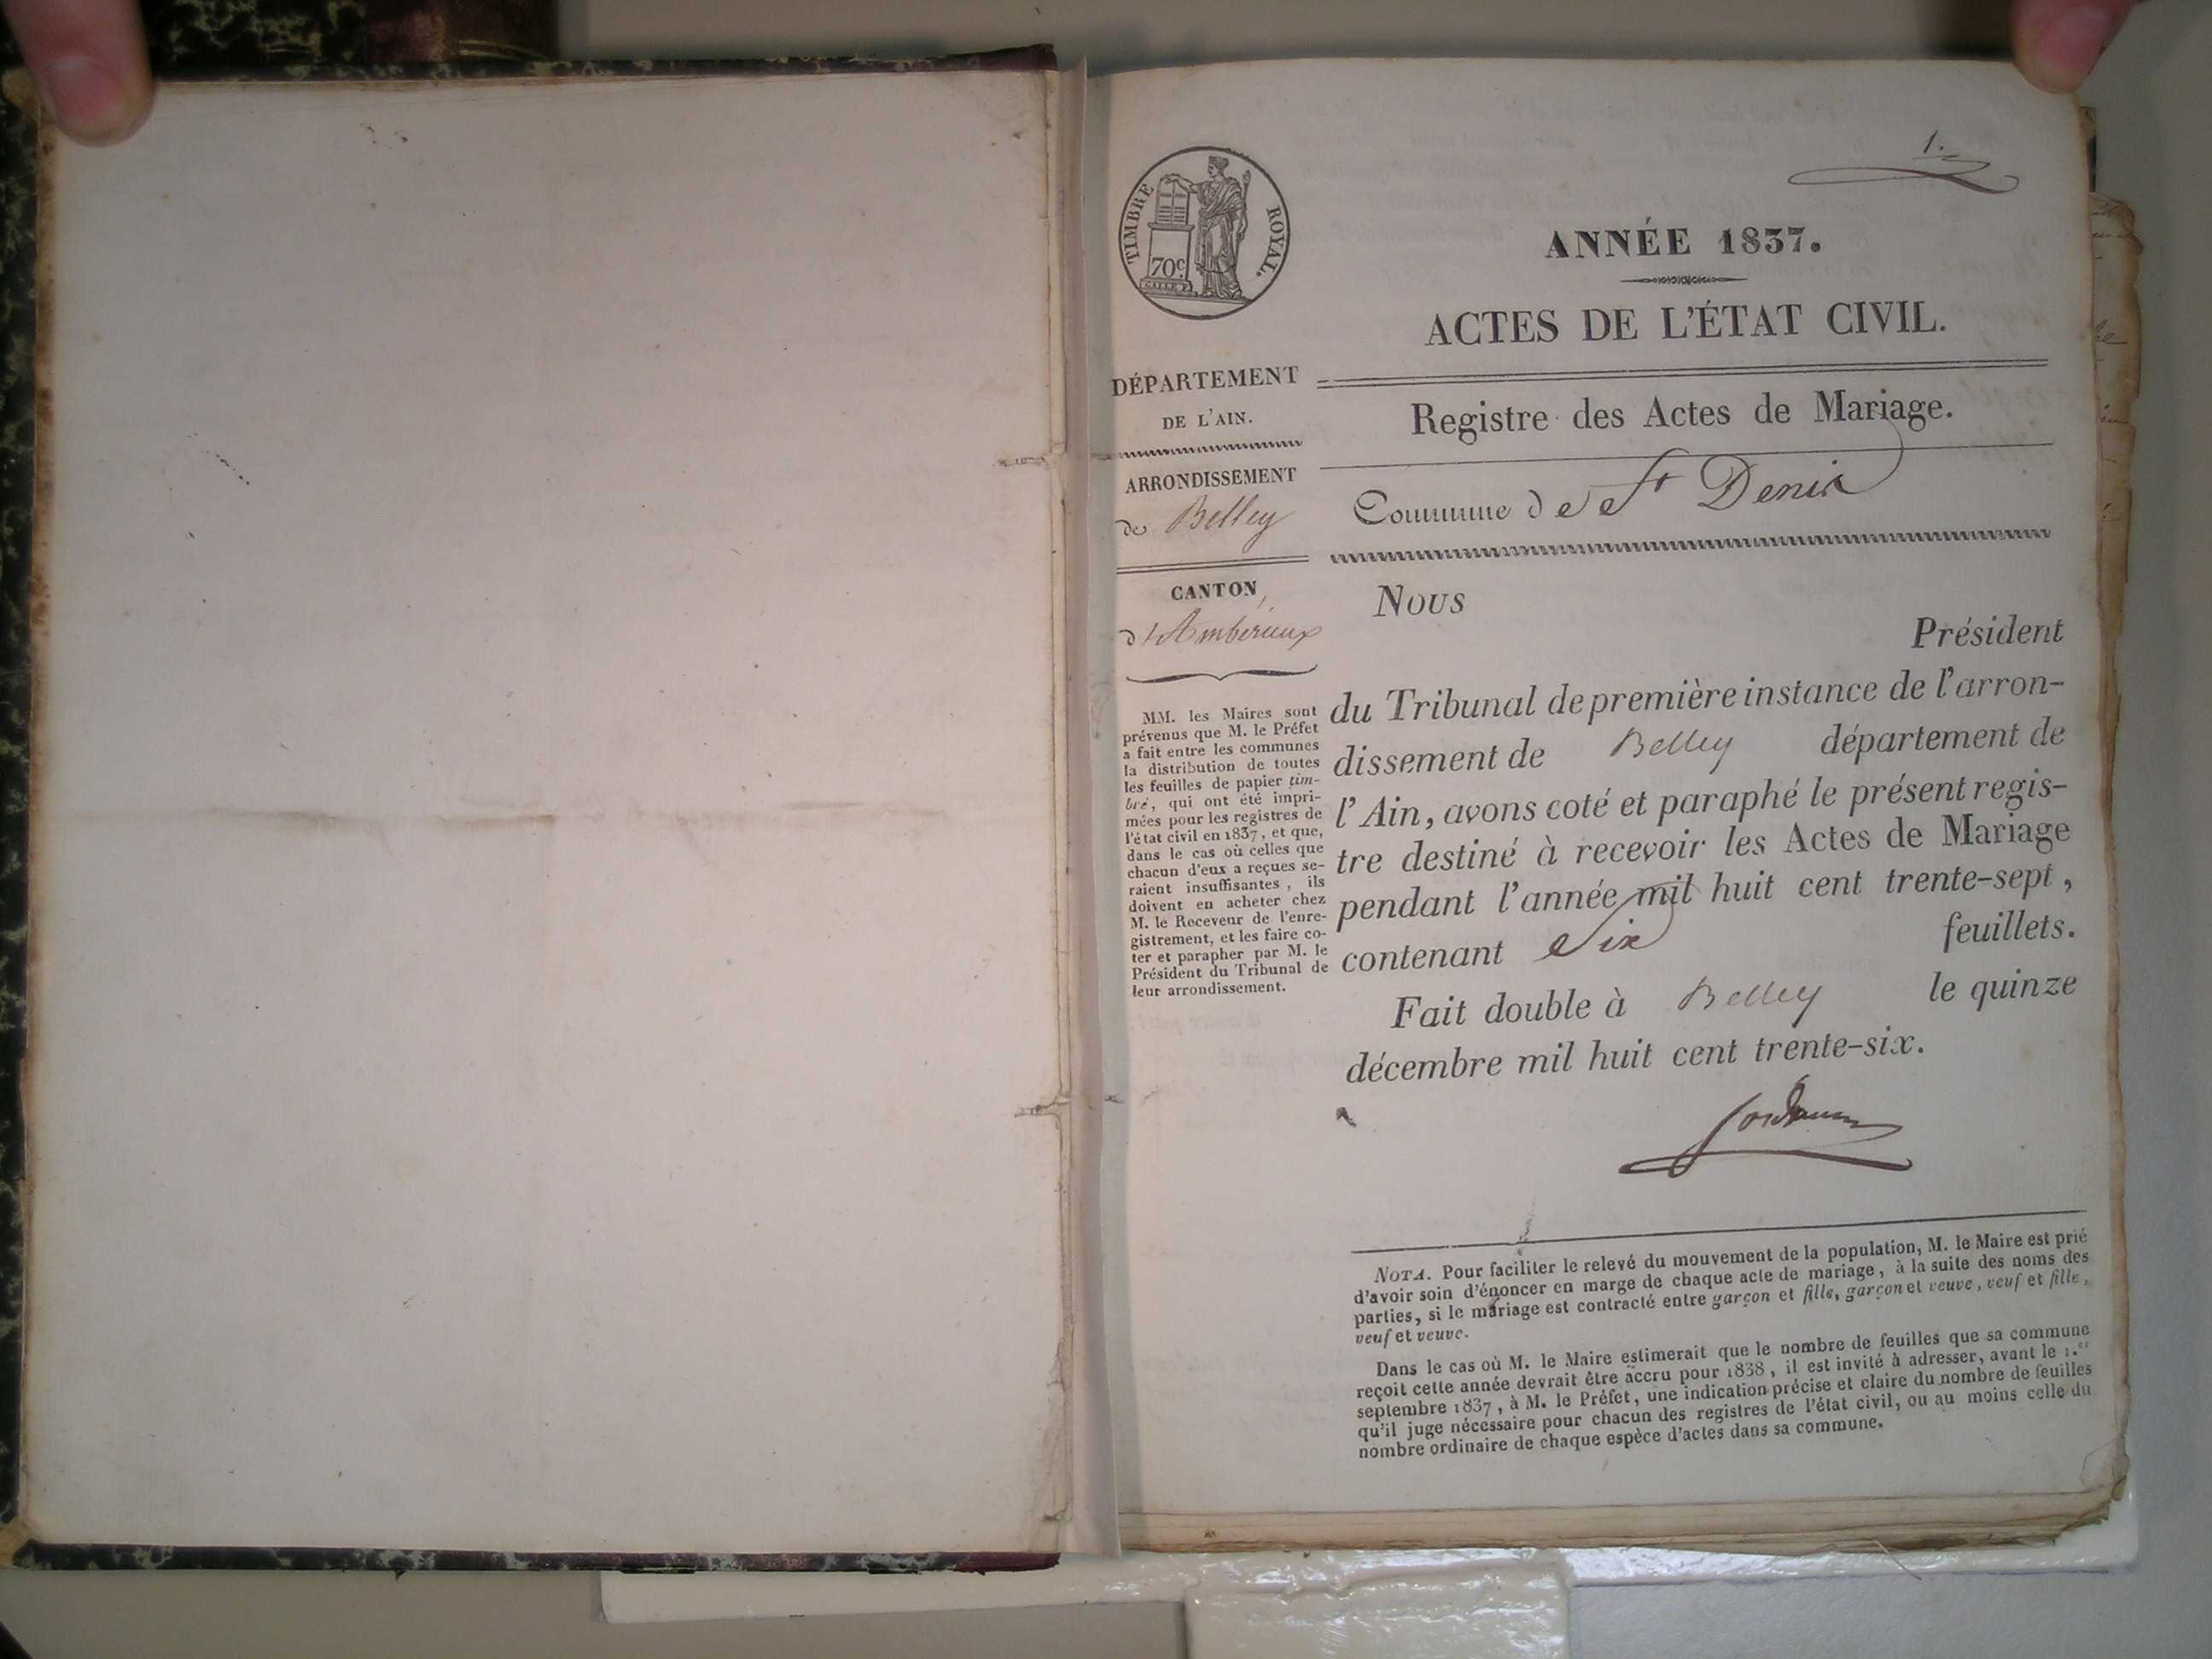 1.
TIMBRE ROYAL.
70c.
GALLE F.
ANNÉE 1837.
ACTES DE L'ÉTAT CIVIL.
Registre des Actes de Mariage.
Commune de St Denis
DÉPARTEMENT
DE L'AIN.
ARRONDISSEMENT
de Belley
CANTON
d'Ambérieux
MM. les Maires sont
prévenus que M. le Préfet
a fait entre les communes
la distribution de toutes
les feuilles de papier tim-
bré, qui ont été impri-
mées pour les registres de
l'état civil en 1837, et que,
dans le cas où celles que
chacun d'eux a reçues se-
raient insuffisantes, ils
doivent en acheter chez
M. le Receveur de l'enre-
gistrement, et les faire co-
ter et parapher par M. le
Président du Tribunal de
leur arrondissement.
Nous
Président
du Tribunal de première instance de l'arron-
dissement de Belley département de
l'Ain, avons coté et paraphé le présent regis-
tre destiné à recevoir les Actes de Mariage
pendant l'année mil huit cent trente-sept,
contenant Six feuillets.
Fait double à Belley le quinze
décembre mil huit cent trente-six.
NOTA. Pour faciliter le relevé du mouvement de la population, M. le Maire est prié
d'avoir soin d'énoncer en marge de chaque acte de mariage, à la suite des noms des
parties, si le mariage est contracté entre garçon et fille, garçon et veuve, veuf et fille,
veuf et veuve.
Dans le cas où M. le Maire estimerait que le nombre de feuilles que sa commune
reçoit cette année devrait être accru pour 1838, il est invité à adresser, avant le 1.er
septembre 1837, à M. le Préfet, une indication précise et claire du nombre de feuilles
qu'il juge nécessaire pour chacun des registres de l'état civil, ou au moins celle du
nombre ordinaire de chaque espèce d'actes dans sa commune.